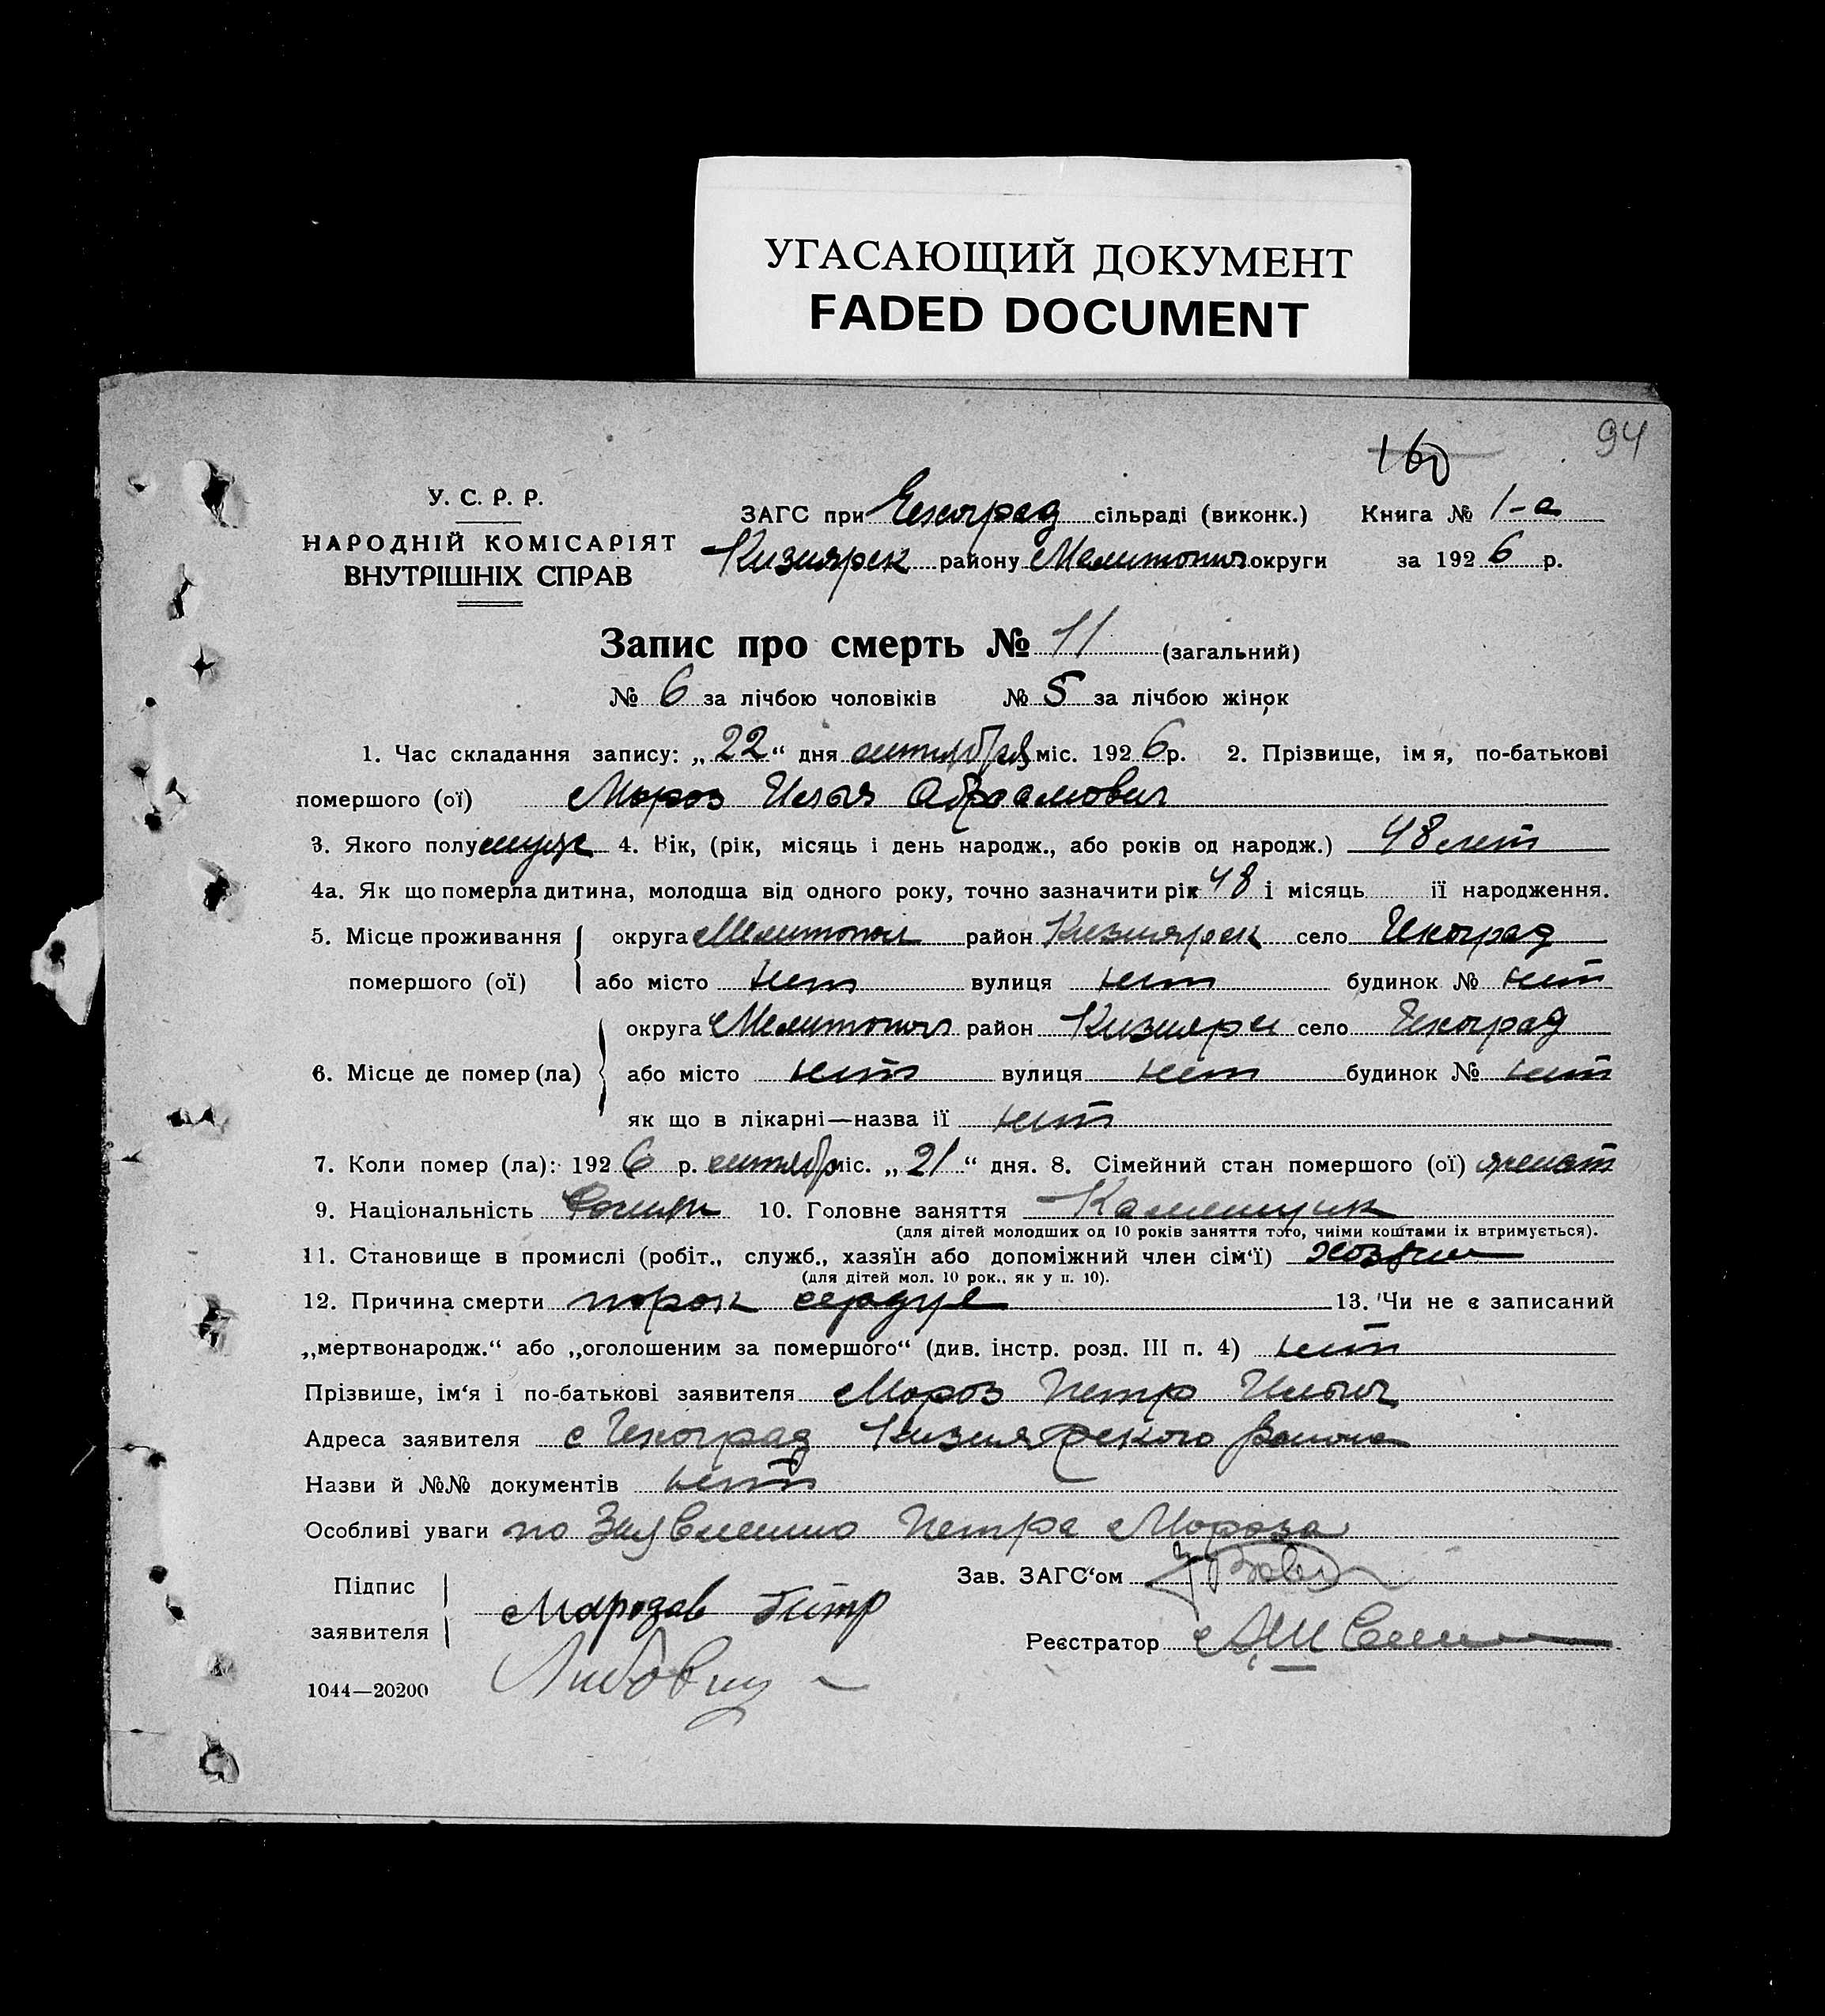 УГАСАЮЩИЙ ДОКУМЕНТ
FADED DOCUMENT
94
160
У. С. Р. Р.
НАРОДНІЙ КОМІСАРІЯТ
ВНУТРІШНІХ СПРАВ
ЗАГС при сільраді (виконк.) Книга № 1-а
Кизиярск району Мелитопол округи за 1926 р.
Запис про смерть № 11 (загальний)
№ 6 за лічбою чоловіків № 5 за лічбою жінок
1. Час складання запису: „22“ дня сентября міс. 1926 р. 2. Прізвище, імя, по-батькові
помершого (ої) Мороз Илья Абрамович
3. Якого полу мужс 4. Вік, (рік, місяць і день народж., або років од народж.) 48 лет
4а. Як що померла дитина, молодша від одного року, точно зазначити рік 48 і місяць її народження.
5. Місце проживання округа Мелитопол район Кизиярск село
помершого (ої) або місто нет вулиця нет будинок № нет
округа Мелитопол район село
6. Місце де помер (ла) або місто нет вулиця нет будинок № нет
як що в лікарні—назва її нет
7. Коли помер (ла): 1926 р. сентябр міс. „21“ дня. 8. Сімейний стан помершого (ої) женат
9. Національність 10. Головне заняття Каменщик
(для дітей молодших од 10 років заняття того, чиїми коштами їх втримується).
11. Становище в промислі (робіт., служб., хазяїн або допоміжний член сім'ї) хозяин
(для дітей мол. 10 рок., як у п. 10).
12. Причина смерти порок сердца 13. Чи не є записаний
„мертвонародж.“ або „оголошеним за помершого“ (див. інстр. розд. III п. 4) нет
Прізвище, ім'я і по-батькові заявителя Мороз Петр Ильич
Адреса заявителя с Кизиярского района
Назви й №№ документів нет
Особливі уваги по Заявлению Петра Мороза
Підпис
заявителя Марозов Петр
Зав. ЗАГС'ом
Реєстратор
1044—20200